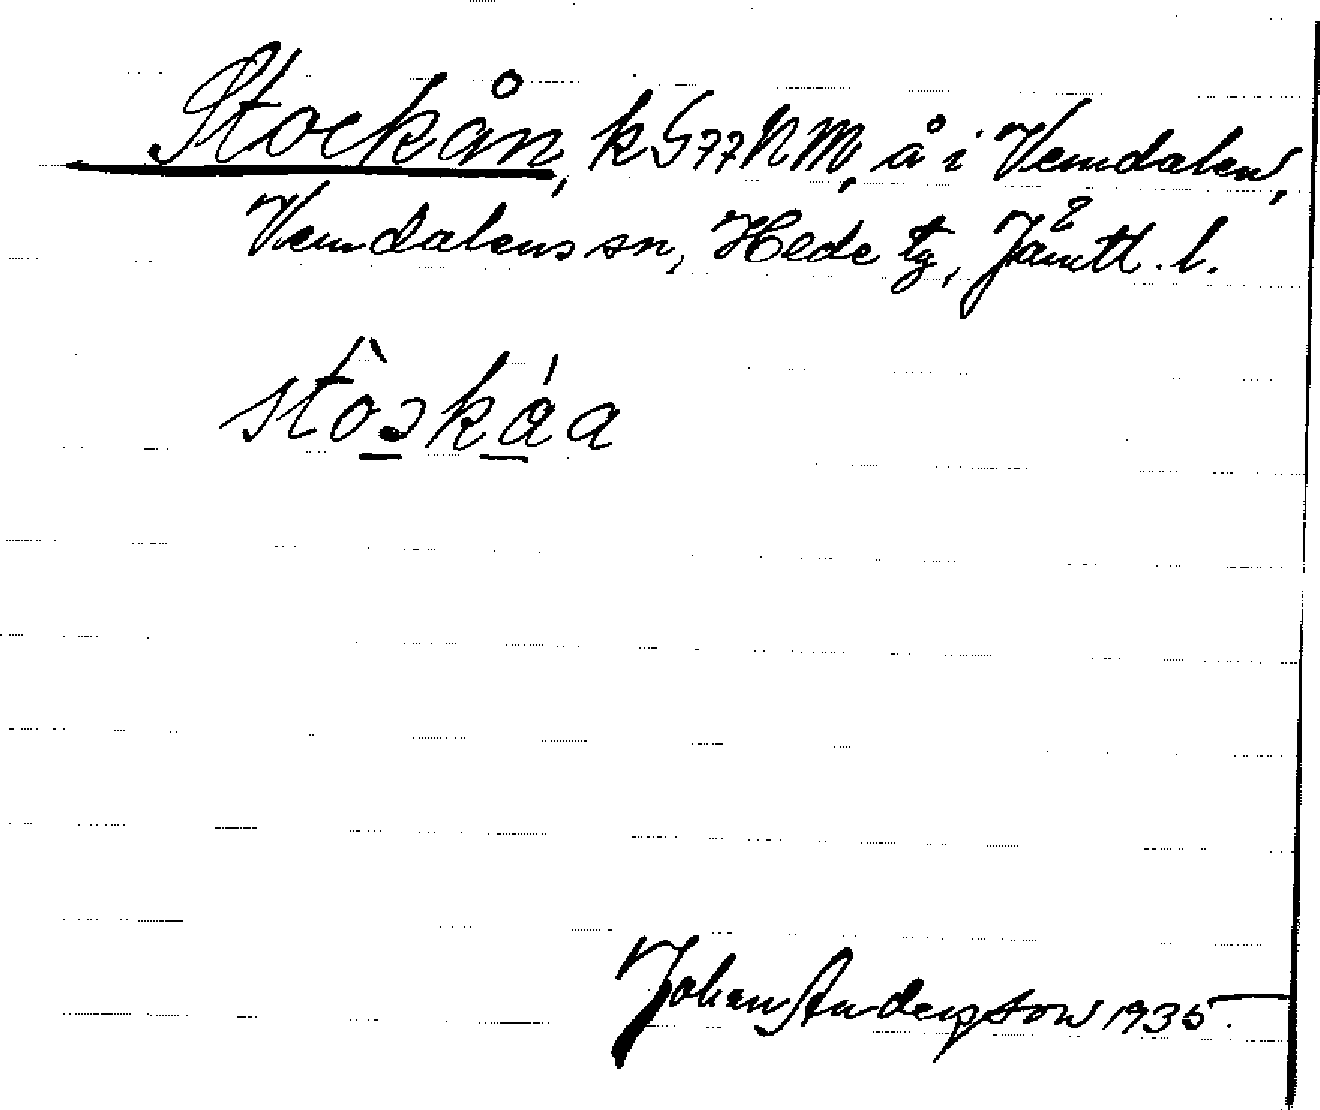 Stockån, k G77NM, å i Vemdalen,
Vemdalens sn, Hede tg, Jämtl. l.
Johan Anderson 1935.